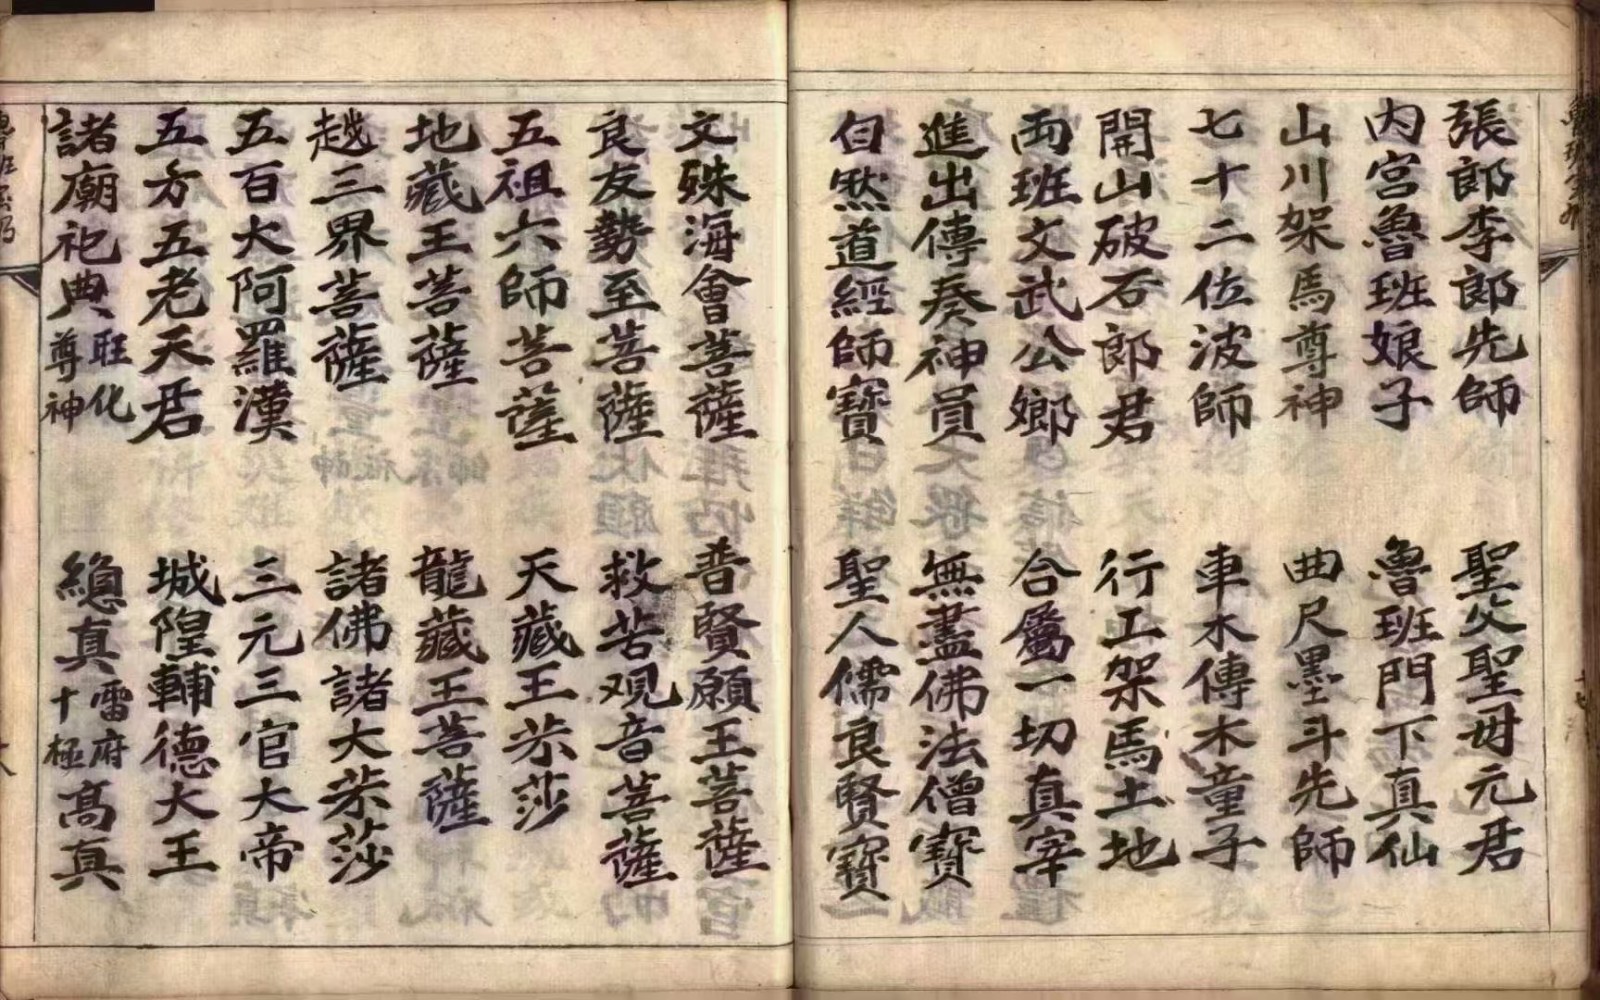 張郎李郎先師　聖父聖母元君
内宫魯班娘子　魯班門下真仙
山川架馬尊神　曲尺墨斗先師
七十二位波師　車木傳木童子
開山破石郎君　行工架馬土地
両班文武公鄉　合屬一切真宰
進出傳奏神員　無盡佛法僧寶
自然道經師寶　聖人儒良賢寶
文殊海會菩薩　普賢願王菩薩
良友勢至菩薩　救苦观音菩薩
五祖六師菩薩　天藏王𦬇莎
地藏王菩薩　龍藏王菩薩
越三界菩薩　諸佛諸大𦬇莎
五百大阿羅漢　三元三官大帝
五方五老天君　城隍輔德大王
諸廟祀典旺化尊神　總真雷府十極高真